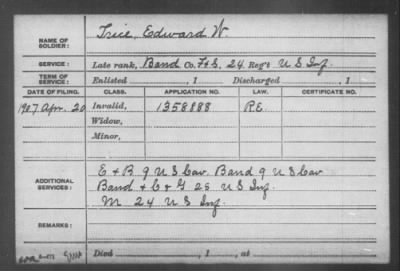 NAME OF SOLDIER: Trice, Edward W.
SERVICE: Late rank, Band Co. F&S, 24 Reg't U S Inf.
TERM OF SERVICE: Enlisted , 1 Discharged , 1
DATE OF FILING. CLASS. APPLICATION NO. LAW. CERTIFICATE NO.
1907 Apr. 20 Invalid, 1358888 R.E.
Widow,
Minor,
ADDITIONAL SERVICES: E & B 9 U S Cav. Band 9 U S Cav
Band & C & G 25 U S Inf.
M 24 U S Inf.
REMARKS:
Died , 1 , at